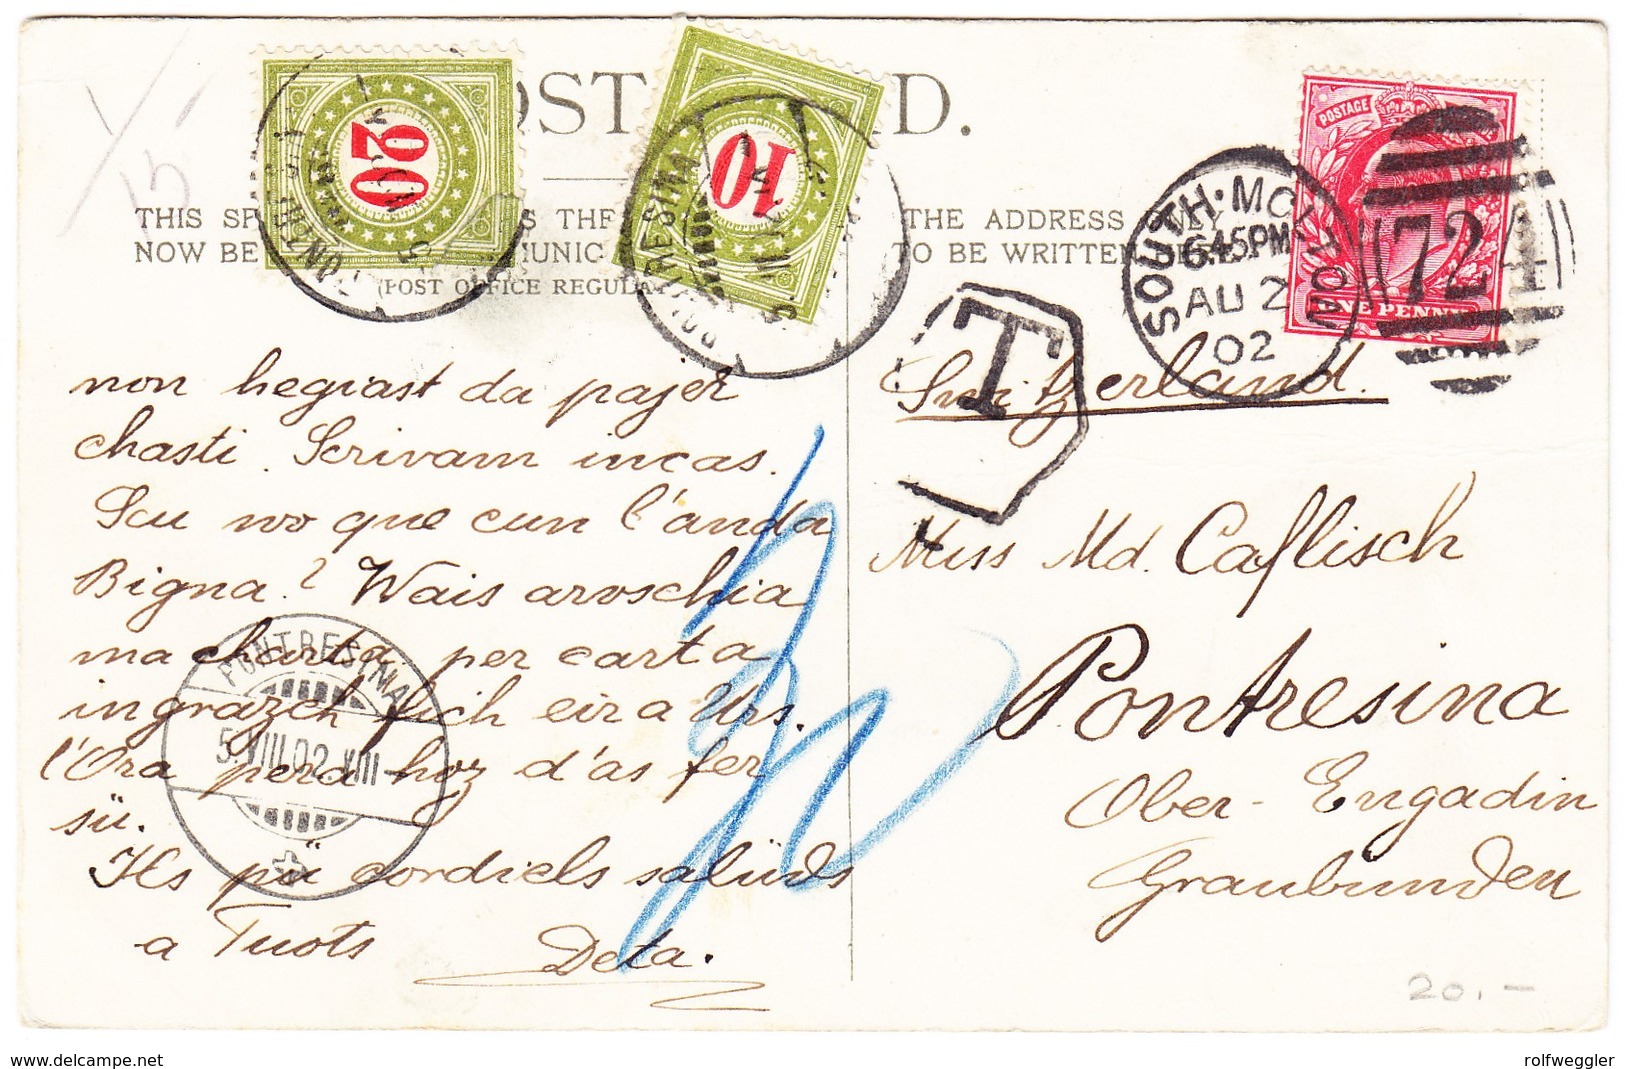 POST CARD.
THIS SP S THE THE ADDRESS ONLY
NOW BE MUNIC TO BE WRITTEN
(POST OFFICE REGULA
20
10
PONTRESINA
POSTAGE
ONE PENNY
SOUTH·MOLTON
6.45PM
AU 2
02
724
T
15
non hegiast da pajer
chasti. Scrivam incas.
Sau no que cun l'anda
Bigna? Wais aroschia
ma charta per carta
ingrazch fich eir a Urs.
l'Ora pera hoz d'as fer
sü.
Ils pü cordiels salüds
a Tuots Deta.
PONTRESINA
5.VIII.02.VIII
30
Switzerland.
Miss Md. Caflisch
Pontresina
Ober-Engadin
Graubunden
20.-
www.delcampe.net
rolfweggler